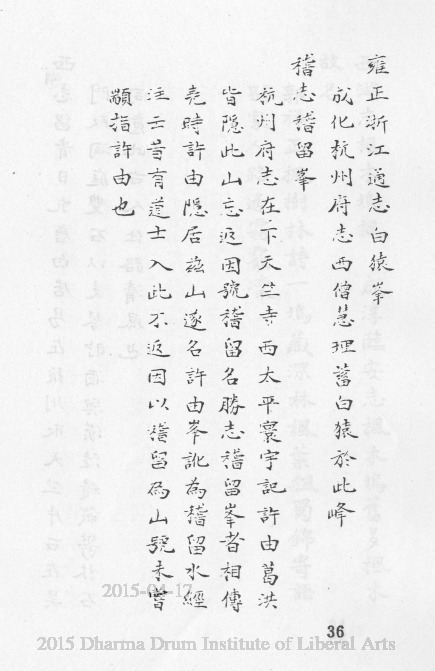 雍正浙江通志白猿峯
成化杭州府志西僧慧理蓄白猿於此峰
稽志稽留峯
杭州府志在下天竺寺西太平寰宇記許由葛洪
皆隱此山忘返因號稽留名勝志稽留峯者相傳
堯時許由隱居茲山遂名許由峯訛為稽留水經
注云昔有道士入此不返因以稽留為山號未嘗
顓指許由也
36
2015-04-17
2015 Dharma Drum Institute of Liberal Arts